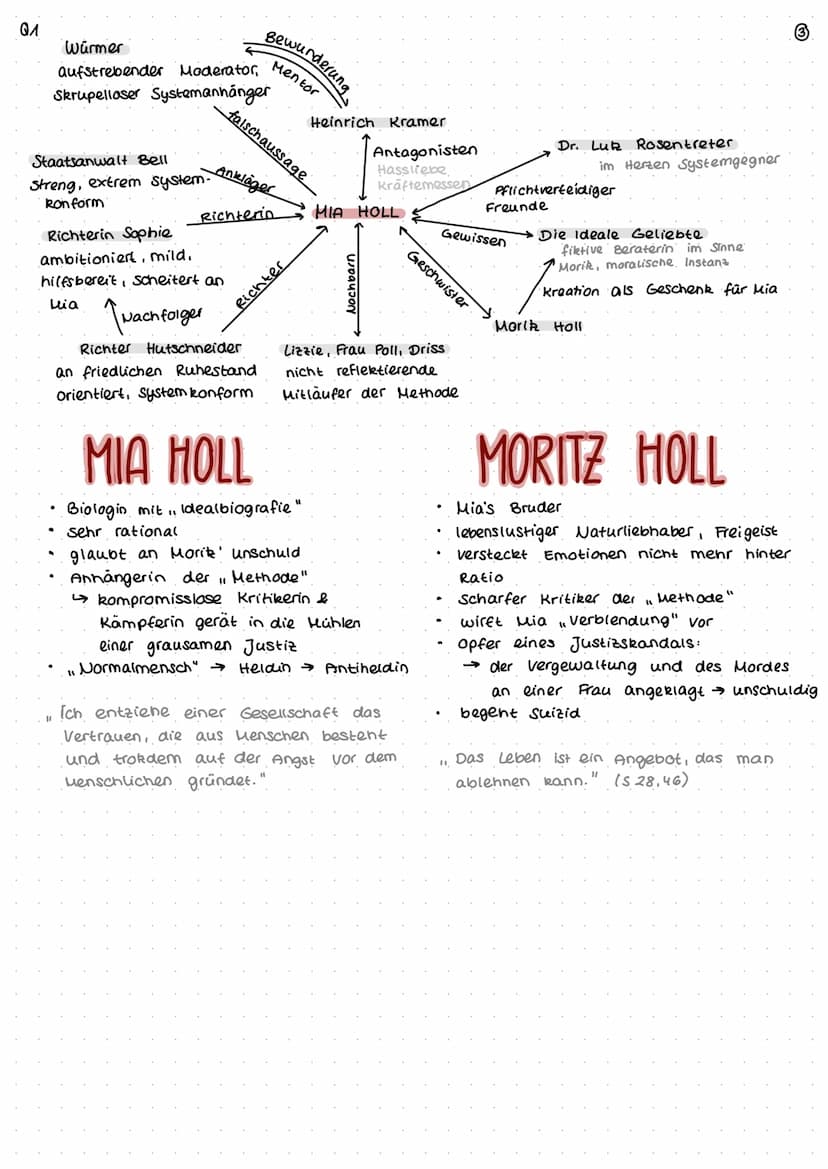 Q1
③
Würmer
aufstrebender Moderator,
skrupelloser Systemanhänger
Bewunderung
Mentor
falschaussage
Heinrich Kramer
Antagonisten
Hassliebe
Kräftemessen
Dr. Lutz Rosentreter
im Herzen Systemgegner
Pflichtverteidiger
Freunde
Staatsanwalt Bell
streng, extrem system-
konform
Ankläger
MIA HOLL
Richterin
Richterin Sophie
ambitioniert, mild,
hilfsbereit, scheitert an
Mia
Gewissen
Die Ideale Geliebte
fiktive Beraterin im Sinne
Moritz, moralische Instanz
Kreation als Geschenk für Mia
Geschwister
Moritz Holl
Nachbarn
Richter
Nachfolger
Richter Hutschneider
an friedlichen Ruhestand
orientiert, systemkonform
Lizzie, Frau Poll, Driss
nicht reflektierende
Mitläufer der Methode
MIA HOLL
• Biologin mit „Idealbiografie"
• sehr rational
• glaubt an Moritz' unschuld
• Anhängerin der „Methode"
↳ kompromisslose Kritikerin &
Kämpferin gerät in die Mühlen
einer grausamen Justiz
• „Normalmensch" → Heldin → Antiheldin
„Ich entziehe einer Gesellschaft das
Vertrauen, die aus Menschen besteht
und trotzdem auf der Angst vor dem
Menschlichen gründet."
MORITZ HOLL
• Mia's Bruder
• lebenslustiger Naturliebhaber, Freigeist
• versteckt Emotionen nicht mehr hinter
Ratio
• scharfer Kritiker der „Methode"
• wirft Mia „Verblendung" vor
• Opfer eines Justizskandals:
→ der Vergewaltung und des Mordes
an einer Frau angeklagt → unschuldig
• begeht Suizid
„Das Leben ist ein Angebot, das man
ablehnen kann." (S 28,46)